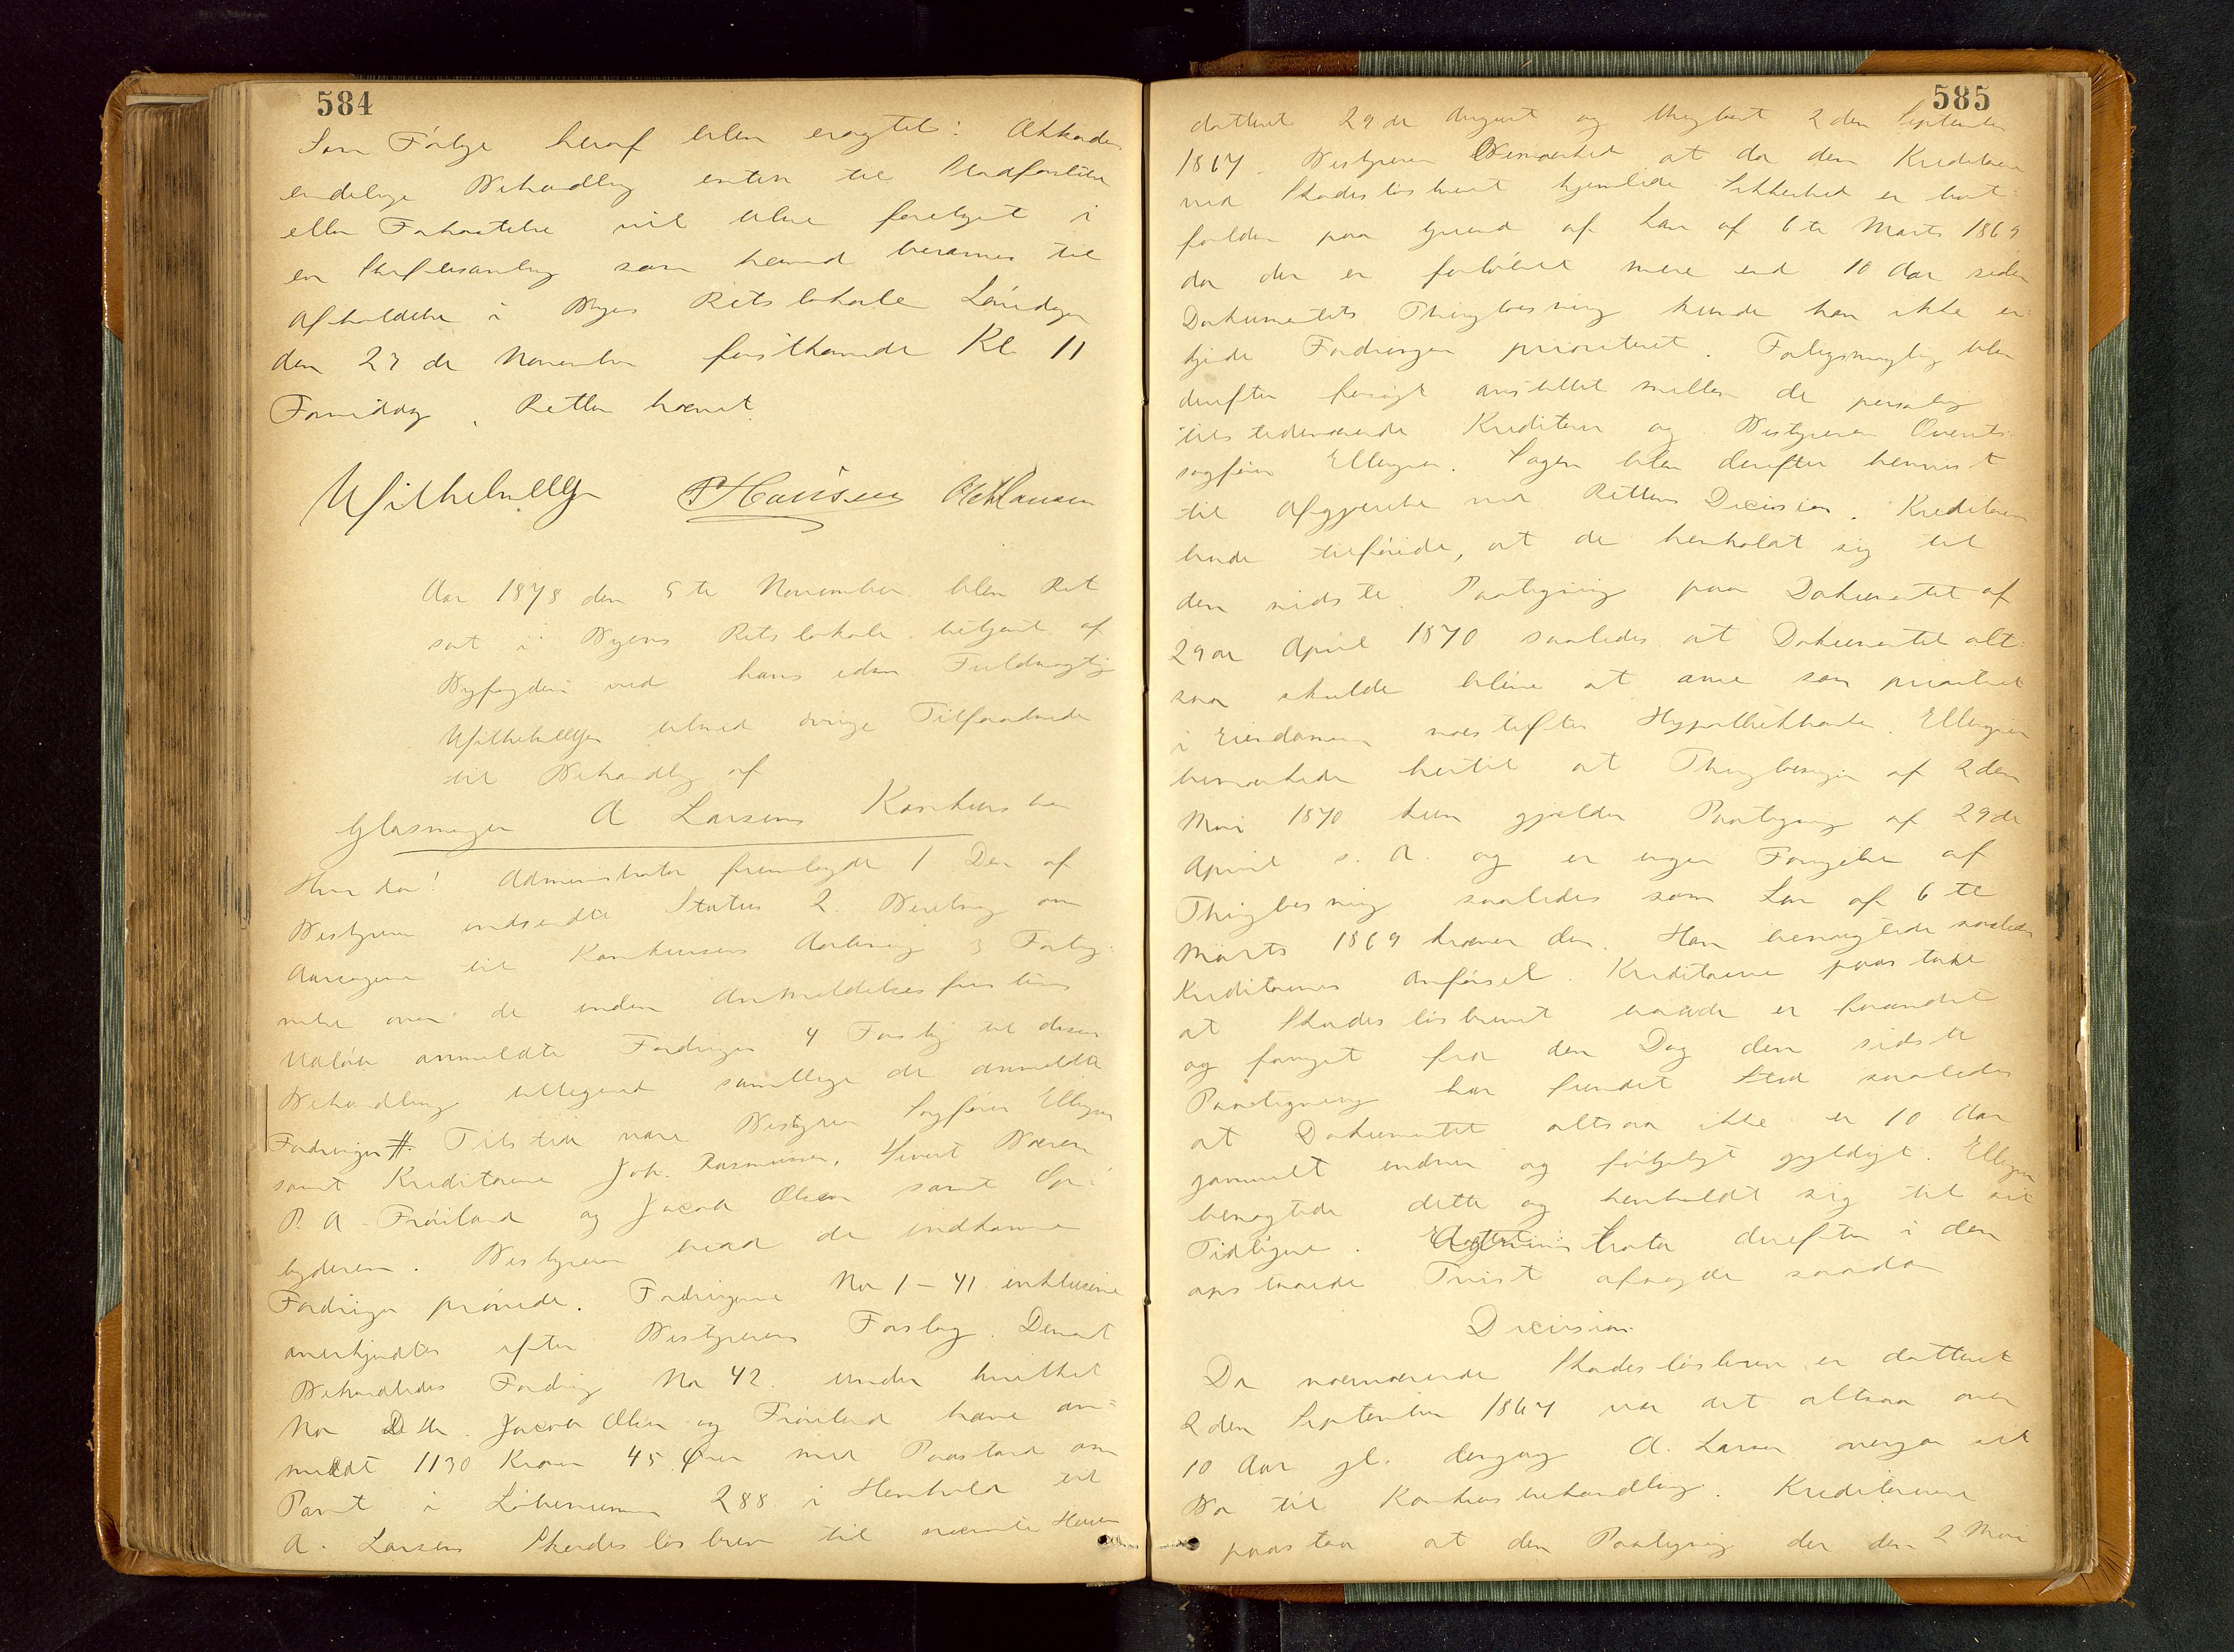 584
Som Følge heraf blev eragtet: Akkordens
endelige Behandling enten til Stadfæstelse
eller Forkastelse vil blive foretaget i
en Skiftesamling som herved berammes til
Afholdelse i Byens Retslokale Løverdagen
den 23de November førstkommende Kl 11
Formiddag. Retten hævet.
P Hansen
Aar 1878 den 5te November blev Ret
sat i Byens Retslokale betjent af
Byfogden ved hans edsv. Fuldmægtig
tilmed øvrige Tilforordnede
til Behandling af
A Larsens Konkursbo
Hvorda! Administrator fremlagde 1 Den af
Bestyreren indsendte Status 2. Beretning om
Aarsagerne til Konkursens Aabning 3 Forteg-
nelse over de inden Anmeldelsesfristens
Udløb anmeldte Fordringer 4 Forslag til disses
Behandling vedlagt samtlige de anmeldte
Fordringer #. Tilstede vare Bestyrer Sagfører Ellingsen
samt Kreditorerne Joh. Rasmussen, Sivert
P. A. Frøiland og Jacob Olsen samt
byderen. Bestyreren bad de indkomne
Fordringer prøvede. Fordringerne No 1 - 41 inklusive
anerkjendtes efter Bestyrerens Forslag. Derpaa
Behandledes Fordring No 42. under hvilket
No Jacob Olsen og Frøiland have an-
meldt 1130 Kroner 45 Øre med Paastand om
Pant i Løbenummer 288 i Henhold til
A. Larsens Skadesløsbrev til nævnte Herrer
585
datteret 29de August og thinglæst 2den September
1867. Bestyreren Bemærkede at da den Kreditorerne
ved Skadesløsbrevet hjemlede Sikkerhed er bort-
falden paa Grund af Lov af 6te Marts 1869
da der er forløbet mere end 10 Aar siden
Dokumentets Thinglæsning kunde han ikke er-
kjende Fordringen prioriteret. Forligsmægling blev
derefter forsøgt anstillet mellem de personlig
tilstedeværende Kreditorer og Bestyreren Overrets-
sagfører Ellingsen. Sagen blev derefter henvist
til Afgjørelse ved Rettens Decision. Kreditorerne
lode tilføie, at de henholdt sig til
den sidste Paategning paa Dokumentet af
29de April 1870 saaledes at Dokumentet alt-
saa skulde blive at anse som prioriteret
i Eiendommen næstefter Hypothekbanken. Ellingsen
bemærkede hertil at Thinglæsningen af 2den
Mai 1870 kun gjælder Paategning af 29de
April s. A. og er ingen Fornyelse af
Thinglæsning saaledes som Lov af 6te
Marts 1869 kræver den. Han benægtede saaledes
Kreditorernes Anførsel. Kreditorerne paastode
at Skadesløsbrevet baade er forandret
og fornyet fra den Dag den sidste
Paategning har fundet Sted saaledes
at Dokumentet altsaa ikke er 10 Aar
gammelt endnu og følgeligt gyldigt. Ellingsen
benægtede dette og henholdt sig til sit
Tidligere. Administrator derefter i den
opstaaede Tvist afsagde saadan
Decision
Da nærværende Skadesløsbrev er datteret
2den September 1867 var det altsaa over
10 Aar gl. dengang A. Larsen overgav sit
Bo til Konkursbehandling. Kreditorerne
paastaa at den Paategning der den 2 Mai